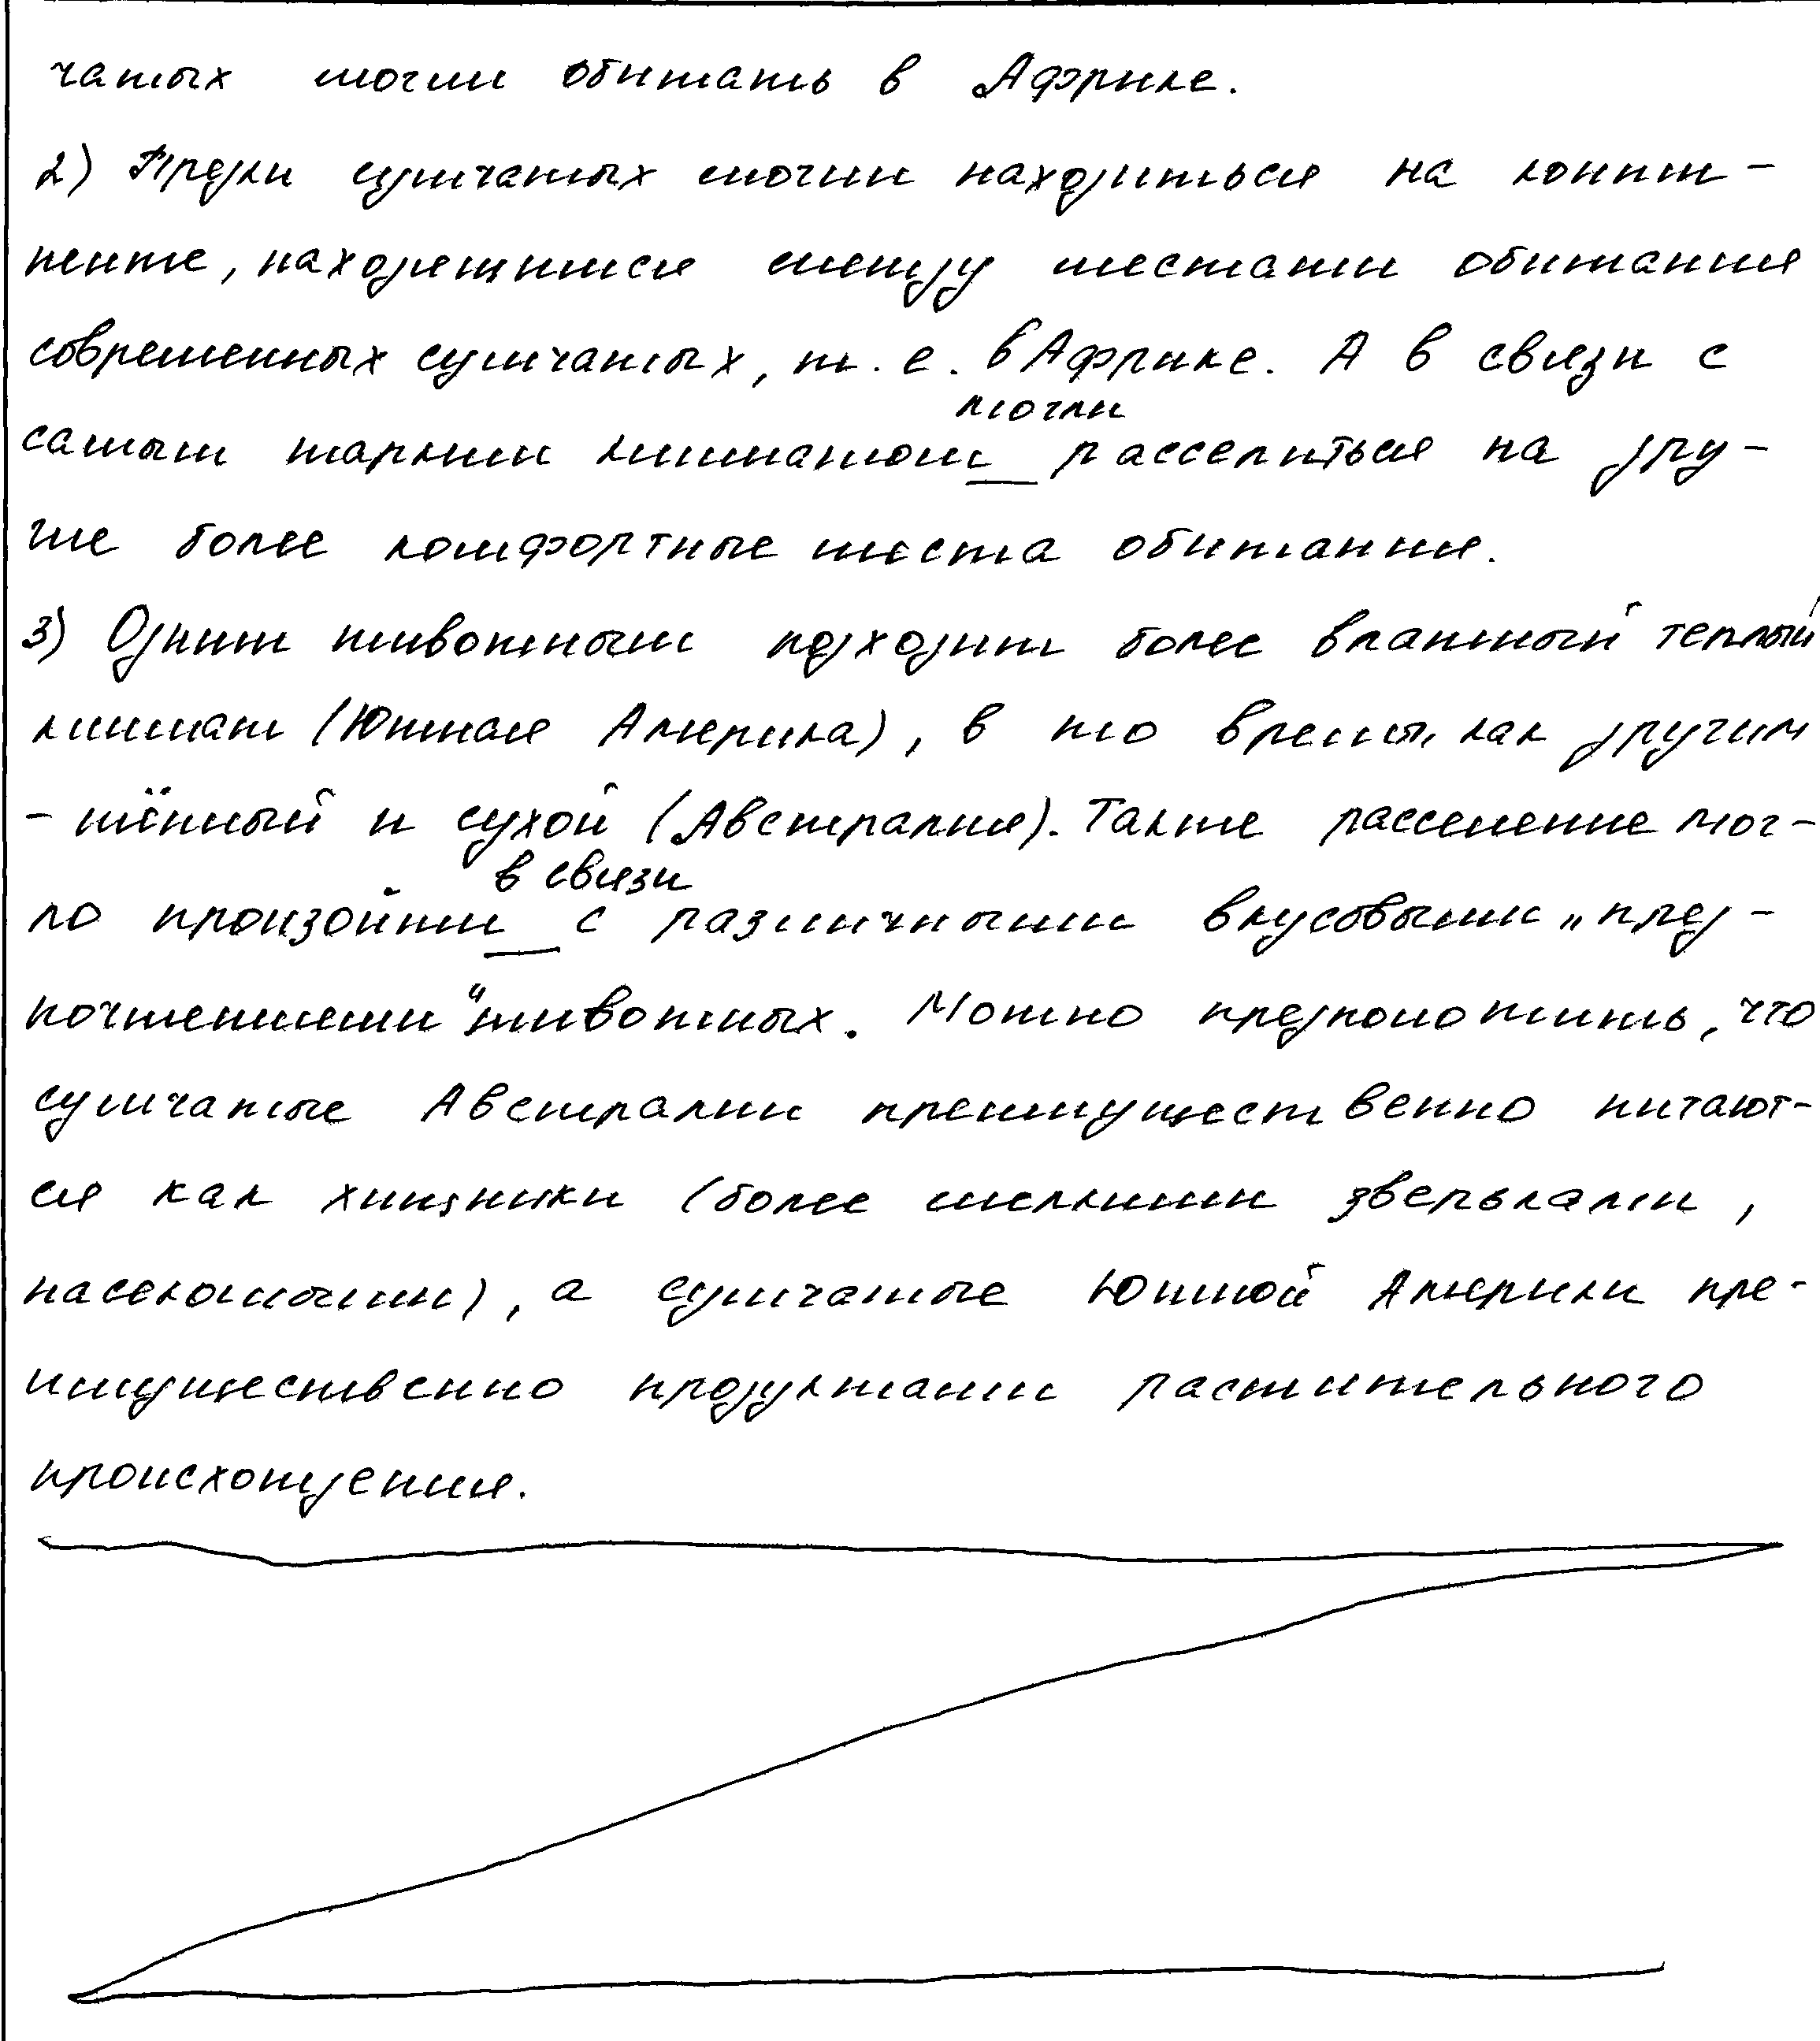 чатых могли обитать в Африке.
2) Предки сумчатых могли находиться на конти-
ненте, находящимся между местами обитания
современных сумчатых, т. е. в Африке. А в связи с
могли
самым жарким климатом расселиться на дру-
гие более комфортные места обитания.
3) Одним животным подходит более влажный теплый
климат (Южная Америка), в то время, как другим
- тёплый и сухой (Австралия). Также расселение мог-
в связи
ло произойти с различными вкусовыми „пред-
почтениями“ животных. Можно предположить, что
сумчатые Австралии преимущественно питают-
ся как хищники (более мелкими зверьками,
насекомыми), а сумчатые Южной Америки пре-
имущественно продуктами растительного
происхождения.